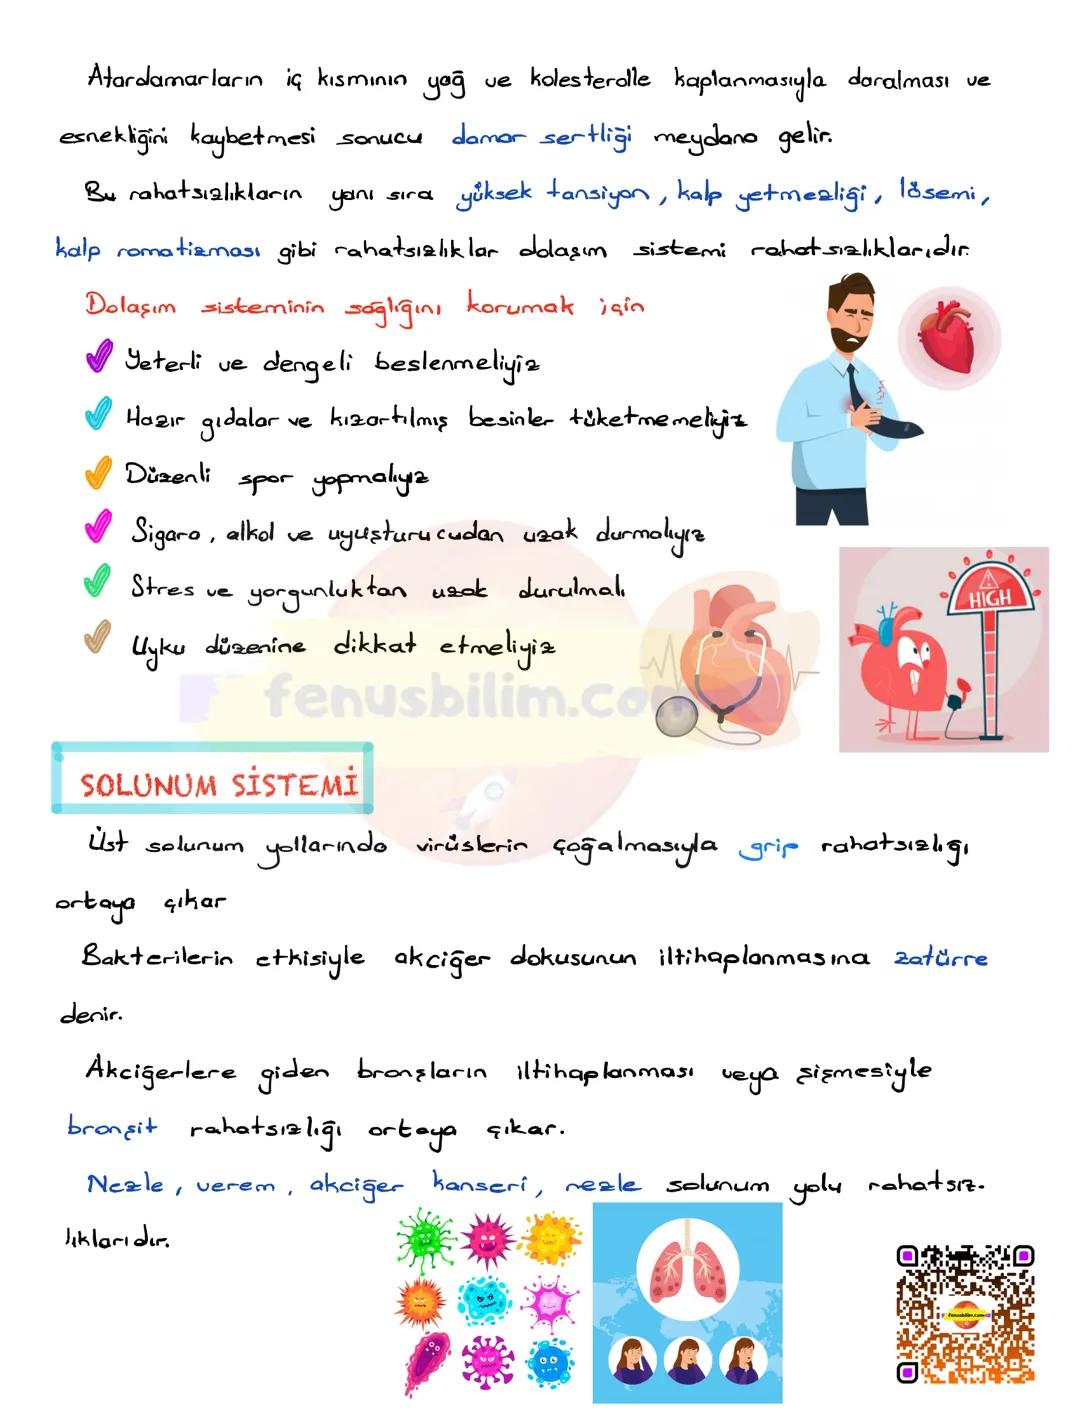 Atardamarların iç kısmının yağ ve kolesterolle kaplanmasıyla daralması ve
esnekliğini kaybetmesi sonucu damar sertliği meydana gelir.
Bu rahatsızlıkların yanı sıra yüksek tansiyon, kalp yetmezliği, lösemi,
kalp romatizması gibi rahatsızlıklar dolaşım sistemi rahatsızlıklarıdır.
Dolaşım sisteminin sağlığını korumak için
Yeterli ve dengeli beslenmeliyiz
Hazır gıdalar ve kızartılmış besinler tüketmemeliyiz
Düzenli spor yapmalıyız
Sigara, alkol ve uyuşturucudan uzak durmalıyız
HIGH
Stres ve yorgunluktan uzak durulmalı
Uyku düzenine dikkat etmeliyiz
fenusbilim.com
SOLUNUM SİSTEMİ
Üst solunum yollarında virüslerin çoğalmasıyla grip rahatsızlığı
ortaya çıkar
Bakterilerin etkisiyle akciğer dokusunun iltihaplanmasına zatürre
denir.
Akciğerlere giden bronşların iltihaplanması veya şişmesiyle
bronşit rahatsızlığı ortaya çıkar.
Nezle, verem, akciğer kanseri, nezle solunum yolu rahatsız-
lıklarıdır.
fenusbilim.com